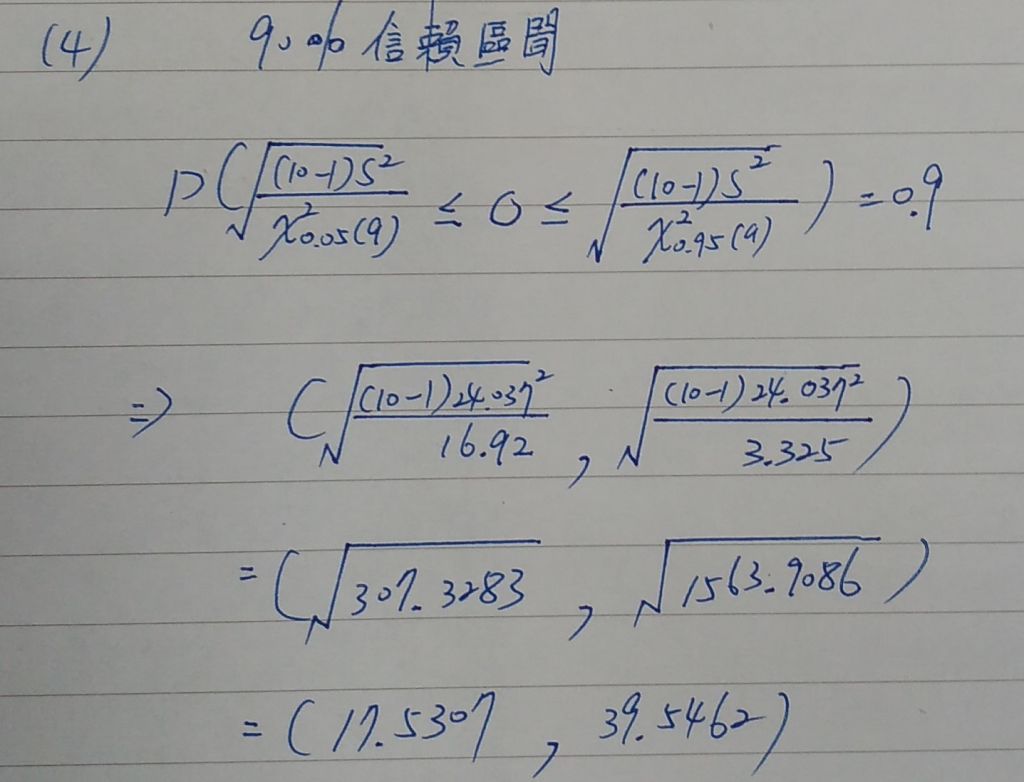 (4) 90% 信賴區間
P(√((10-1)S²/χ²0.05(9)) ≤ σ ≤ √((10-1)S²/χ²0.95(9))) = 0.9
⇒ (√((10-1)24.037²/16.92), √((10-1)24.037²/3.325))
= (√307.3283, √1563.9086)
= (17.5307, 39.5462)